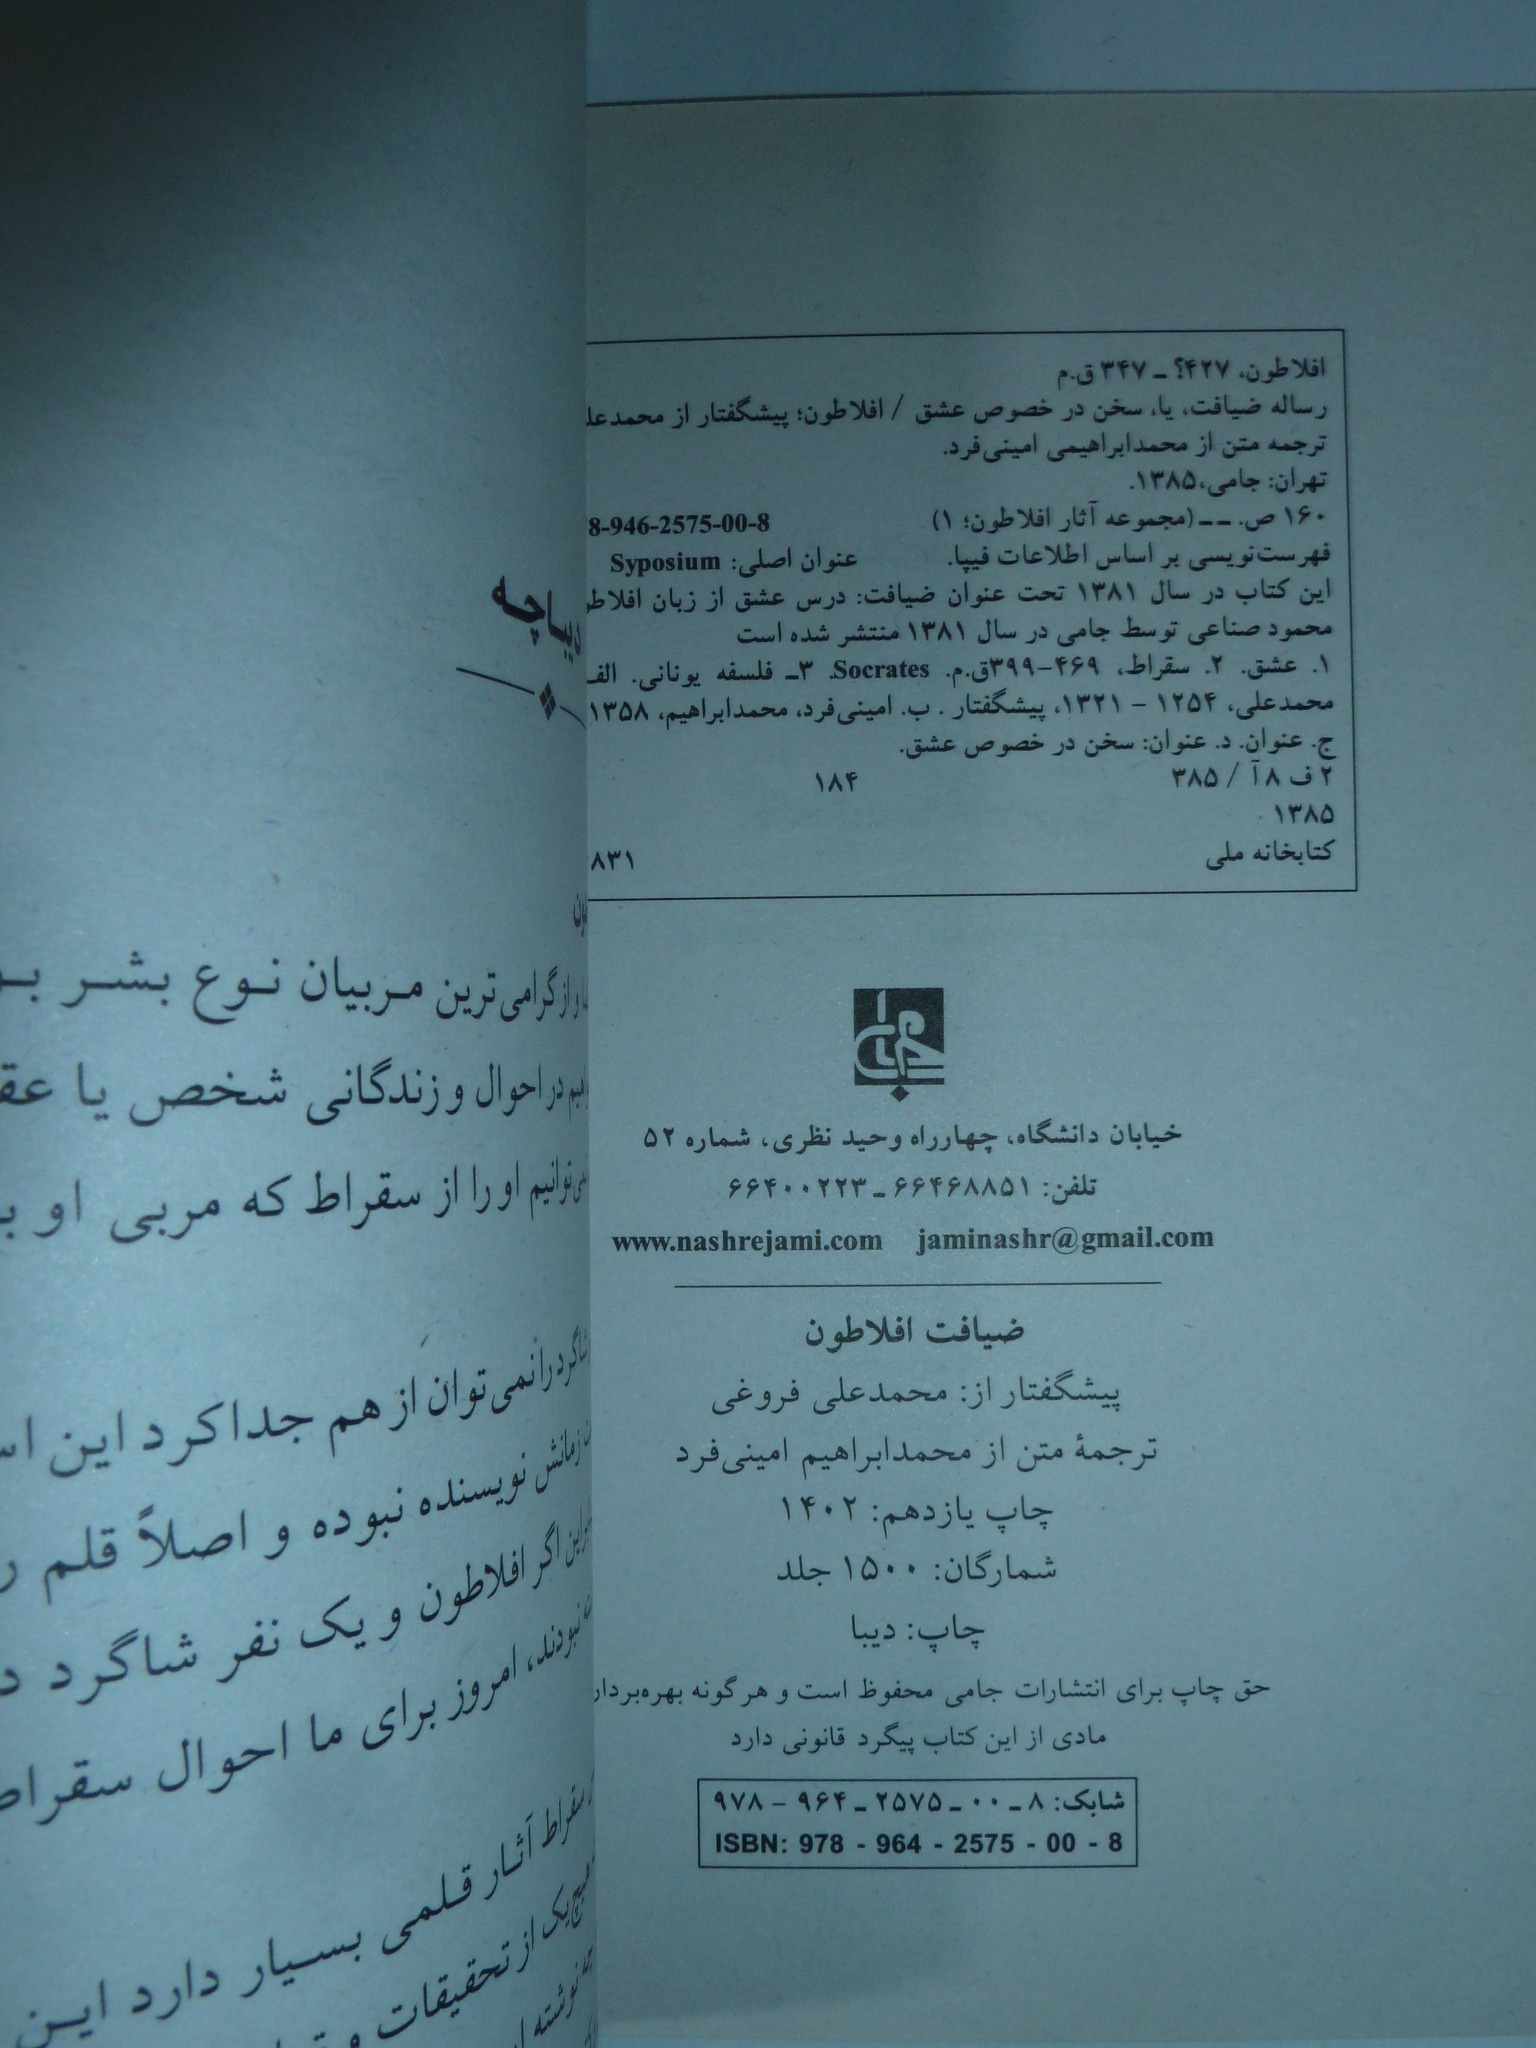 افلاطون، ۴۲۷؟ ـ ۳۴۷ ق.م
رساله ضیافت، یا، سخن در خصوص عشق / افلاطون؛ پیشگفتار از
ترجمه متن از محمدابراهیمی امینی‌فرد.
تهران: جامی،۱۳۸۵.
۱۶۰ ص. ــ (مجموعه آثار افلاطون؛ ۱) 8-946-2575-00-8
فهرست‌نویسی بر اساس اطلاعات فیپا. عنوان اصلی: Syposium
این کتاب در سال ۱۳۸۱ تحت عنوان ضیافت: درس عشق از زبان
محمود صناعی توسط جامی در سال ۱۳۸۱ منتشر شده است
۱. عشق. ۲. سقراط، ۴۶۹-۳۹۹ق.م. Socrates. ۳ـ فلسفه یونانی. الف
محمدعلی، ۱۲۵۴ - ۱۳۲۱، پیشگفتار . ب. امینی‌فرد، محمدابراهیم، ۱۳۵۸
ج. عنوان. د. عنوان: سخن در خصوص عشق.
۲ ف ۸ آ / ۳۸۵ ۱۸۴
۱۳۸۵
کتابخانه ملی ۸۳۱
جامی
خیابان دانشگاه، چهارراه وحید نظری، شماره ۵۲
تلفن: ۶۶۴۶۸۸۵۱ ـ ۶۶۴۰۰۲۲۳
www.nashrejami.com jaminashr@gmail.com
ضیافت افلاطون
پیشگفتار از: محمدعلی فروغی
ترجمهٔ متن از محمدابراهیم امینی‌فرد
چاپ یازدهم: ۱۴۰۲
شمارگان: ۱۵۰۰ جلد
چاپ: دیبا
حق چاپ برای انتشارات جامی محفوظ است و هر گونه
مادی از این کتاب پیگرد قانونی دارد
شابک: ۸ ـ ۰۰ ـ ۲۵۷۵ ـ ۹۶۴ - ۹۷۸
ISBN: 978 - 964 - 2575 - 00 - 8
دیباچه
و از گرامی‌ترین مربیان نوع بشر
در احوال و زندگانی شخص یا
او را از سقراط که مربی او
شاگرد را نمی‌توان از هم جدا کرد این
زمانش نویسنده نبوده و اصلاً قلم
اگر افلاطون و یک نفر شاگرد
نبودند، امروز برای ما احوال سقراط
سقراط آثار قلمی بسیار دارد این
هیچ‌یک از تحقیقات و
نوشته